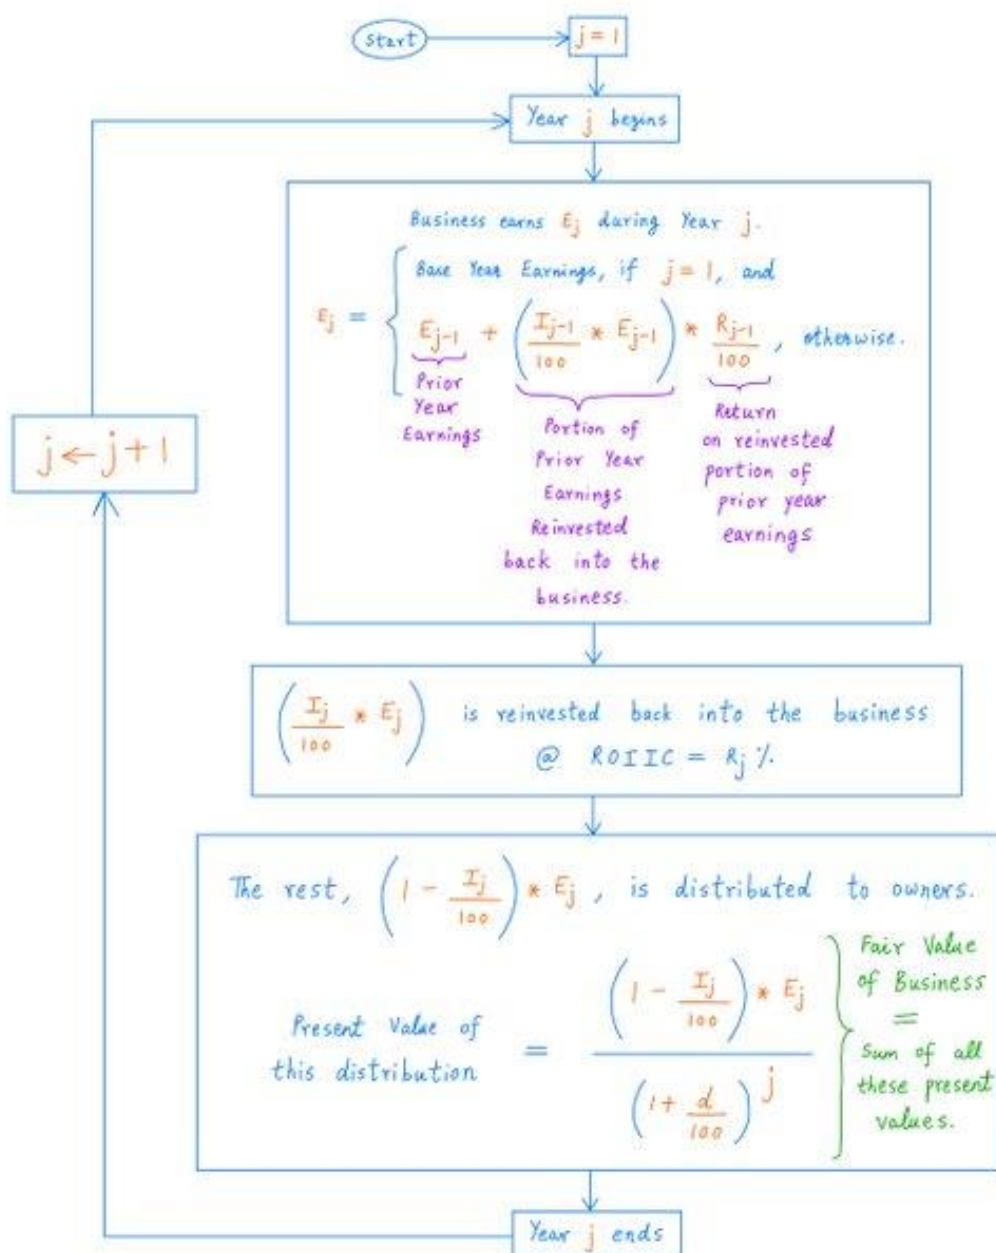 Start
j = 1
Year j begins
Business earns E_j during Year j.
E_j = { Base Year Earnings, if j = 1, and
E_{j-1} + (I_{j-1}/100 * E_{j-1}) * R_{j-1}/100, otherwise.
Prior
Year
Earnings
Portion of
Prior Year
Earnings
Reinvested
back into the
business.
Return
on reinvested
portion of
prior year
earnings
j ← j + 1
(I_j/100 * E_j) is reinvested back into the business
@ ROIIC = R_j %
The rest, (1 - I_j/100) * E_j, is distributed to owners.
Present Value of
this distribution
= (1 - I_j/100) * E_j / (1 + d/100)^j
Fair Value
of Business
=
Sum of all
these present
values.
Year j ends